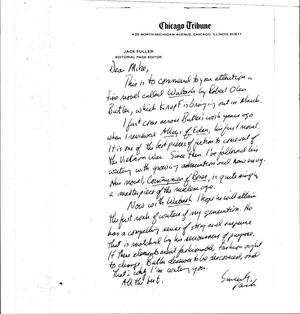 Chicago Tribune
435 NORTH MICHIGAN AVENUE, CHICAGO, ILLINOIS 60611
JACK FULLER
EDITORIAL PAGE EDITOR
Dear Mike,
This is to commend to your attention a
fine novel called Wabash by Robert Olen
Butler, which Knopf is bringing out in March.
I first came across Butler's work years ago
when I reviewed Alleys of Eden, his first novel.
It is one of the best pieces of fiction to come out of
the Vietnam War. Since then I've followed his
writing with growing admiration and now
His novel, Countrymen of Bones, is quite simply
a masterpiece of the nuclear age.
Now with Wabash I hope he will attain
the first rank of writers of my generation. He
has a compelling sense of story and suspense
that is matched by his seriousness of purpose.
If these elements aren't fashionable, fashion ought
to change. Butler deserves to be discovered, and
that's why I'm writing you.
All the best.
Sincerely,
Jack